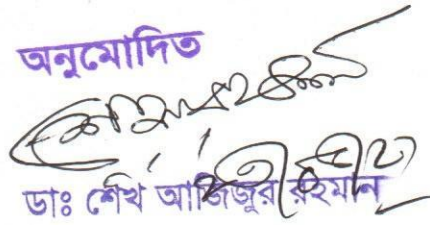 অনুমোদিত
ডাঃ শেখ আজিজুর রহমান